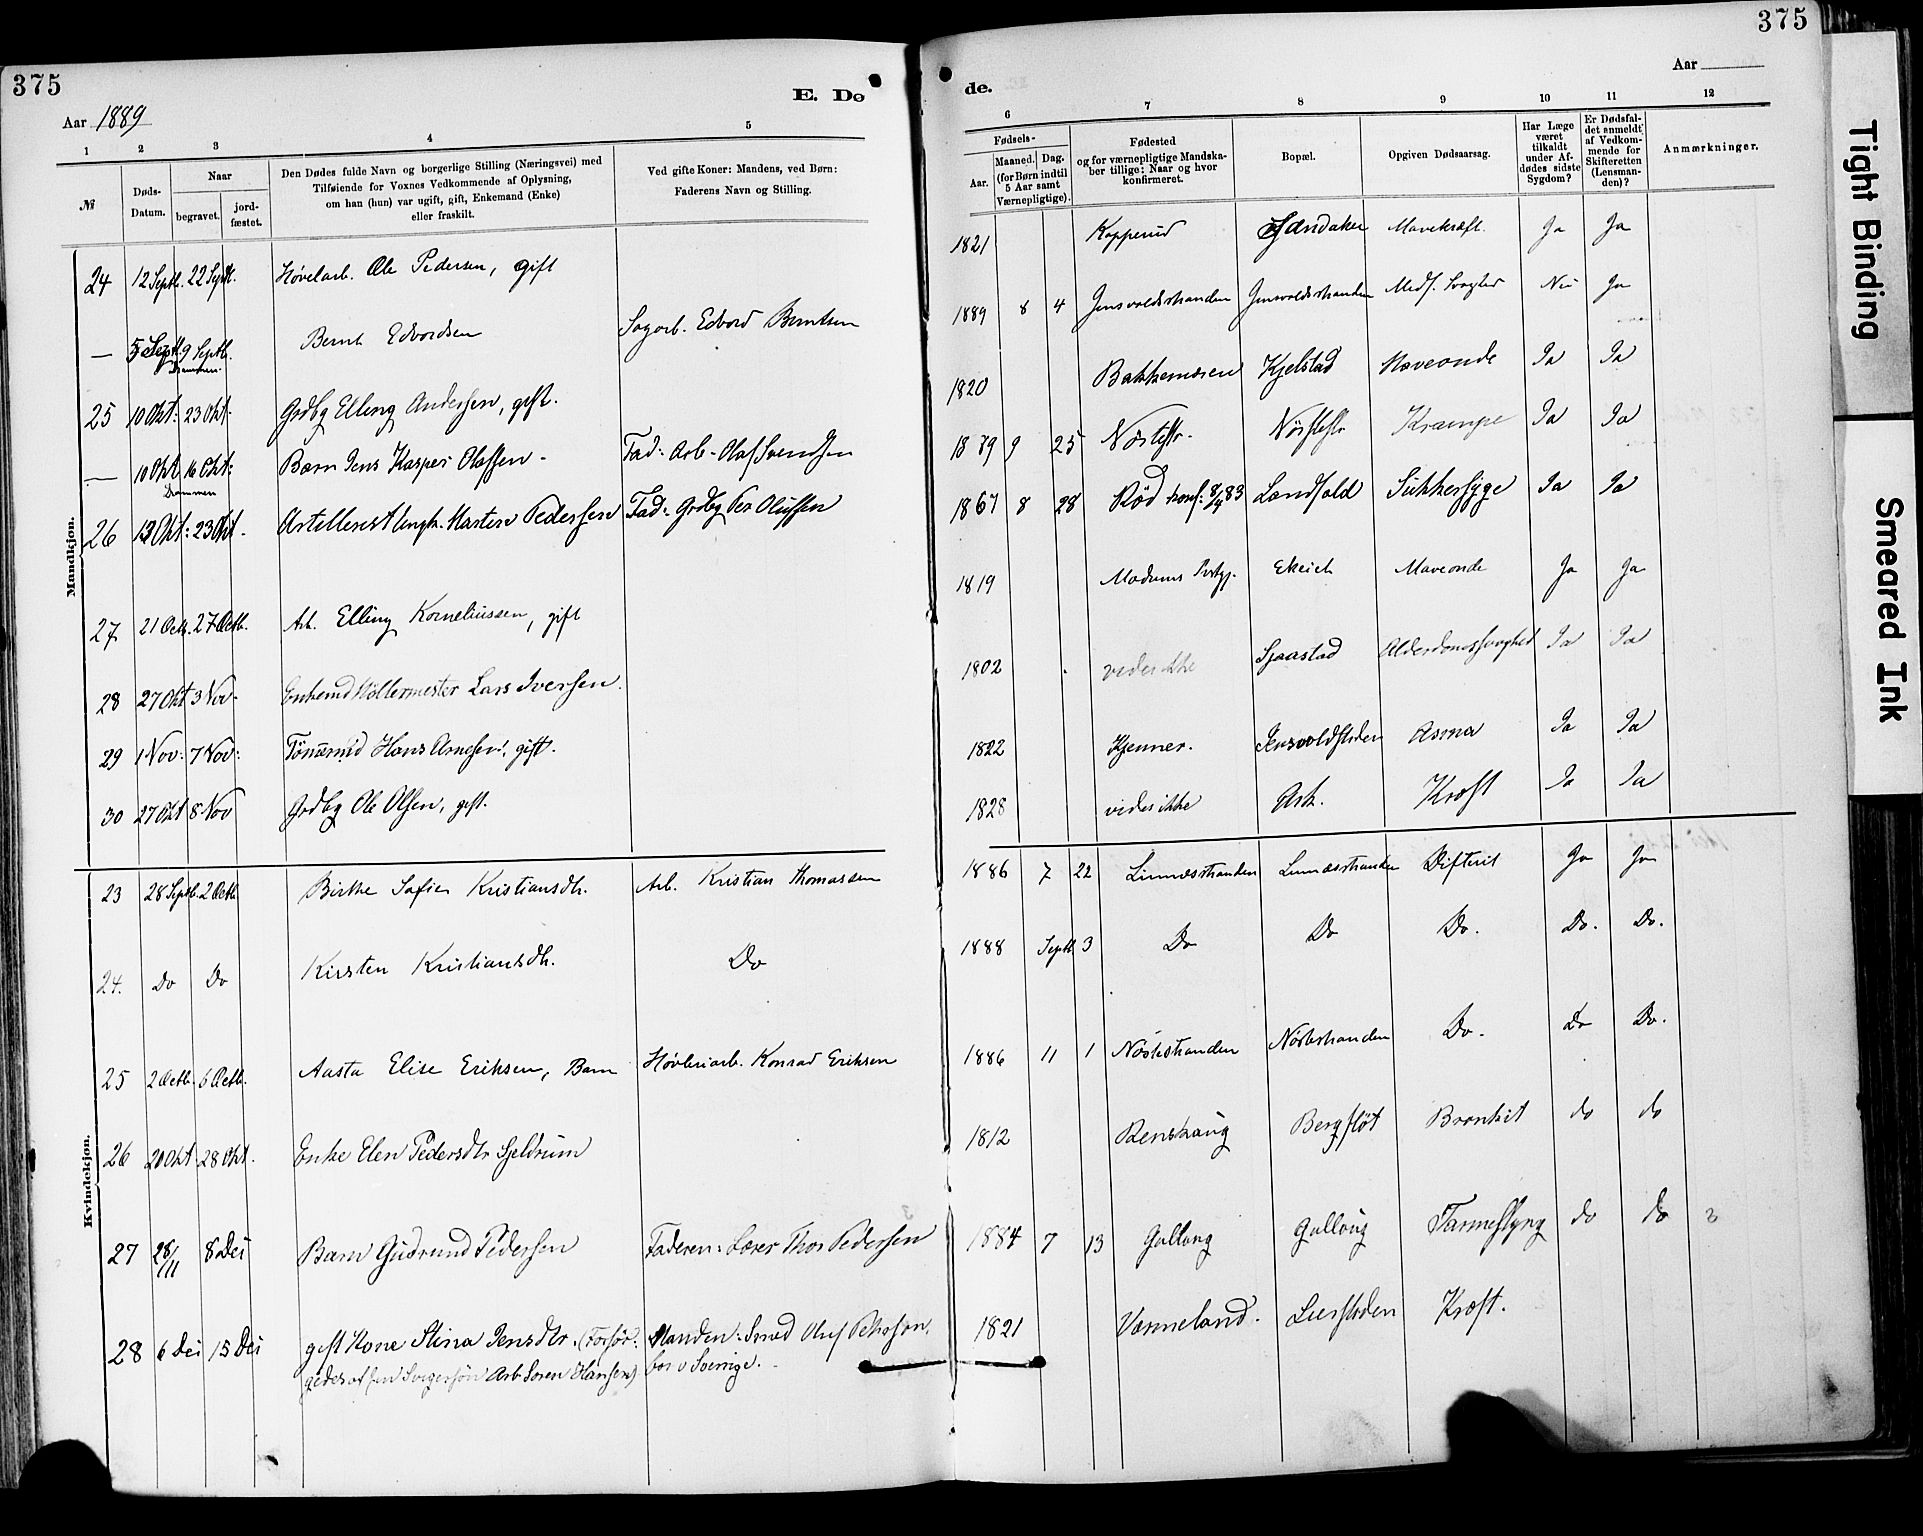 375
375
E. Dø
de.
Aar 1889
Aar
1 2 3 4 5 6 7 8 9 10 11 12
№
Døds-Datum.
Naar
begravet.
jord-fæstet.
Den Dødes fulde Navn og borgerlige Stilling (Næringsvei) med
Tilføiende for Voxnes Vedkommende af Oplysning,
om han (hun) var ugift, gift, Enkemand (Enke)
eller fraskilt.
Ved gifte Koner: Mandens, ved Børn:
Faderens Navn og Stilling.
Fødsels-
Aar.
Maaned. Dag.
(for Børn indtil
5 Aar samt
Værnepligtige).
Fødested
og for værnepligtige Mandska-
ber tillige: Naar og hvor
konfirmeret.
Bopæl.
Opgiven Dødsaarsag.
Har Læge
været
tilkaldt
under Af-
dødes sidste
Sygdom?
Er Dødsfal-
det anmeldt
af Vedkom-
mende for
Skifteretten
(Lensman-
den)?
Anmærkninger.
Mandkjøn.
24 12 Septb. 22 Septb. Høvelarb. Ole Pedersen, gift 1821 Kopperud Sandaker Mavekræft. Ja Ja
— 5 Septb. 9 Septb. Drammen. Bernt Edvardsen Sagarb. Edvard Berntsen 1889 8 4 Jensvoldstranden Jensvoldstranden Medf. Svaghed Nei Ja
25 10 Okt: 23 Okt. Grdbg Elling Andersen, gift. 1820 Bakkemoren Kjelstad Maveonde Ja Ja
— 10 Okt 16 Okt: Drammen Barn Jens Kasper Olafsen - Fad: Arb- Olaf Svendsen 1879 9 25 Nøstestr. Nøstestr Krampe Ja Ja
26 13 Okt: 23 Okt. Martin Pedersen Fad: Grdbg Per Olufsen 1867 8 28 Rød konf: 8/4 83 Landfald Sukkersyge Ja Ja
27 21 Octb. 27 Octb. Arb. Elling Korneliussen, gift 1819 Modums Prstgj. Ekeich Maveonde Ja Ja
28 27 Okt 3 Nov. Enkemd Møllermester Lars Iversen. 1802 vides ikke Sjaastad Alderdomssvaghed Ja Ja
29 1 Nov: 7 Nov: Hans Arnesen, gift. 1822 Kjenner. Jensvoldstrden Asma Ja Ja
30 27 Okt 8 Nov Grdbg Ole Olsen, gift. 1828 vides ikke Ask. Kræft Ja Ja
Kvindekjøn.
23 28 Septb. 2 Octb. Birthe Sofie Kristiansdtr. Arb. Kristian Thomassen 1886 7 22 Linnæsstranden Linnæsstranden Difterit Ja Ja
24. Do Do Kirsten Kristiansdtr. Do 1888 Septb 3 Do Do Do. Do. Do.
25 2 Octb. 6 Octb. Aasta Elise Eriksen, Barn Høvleriarb. Konrad Eriksen 1886 11 1 Nøstestranden Nøstestranden Do. Do Do.
26 20 Okt 28 Okt. Enke Elen Pedersdtr Gjeldrum 1812 Renskaug Bergfløt Bronkit do do
27 28/11 8 Dei Barn Gudrund Pedersen Faderen: Lærer Thor Pedersen 1884 7 13 Gullaug Gullaug Tarmeslyng do do
28 6 Dei 15 Dei gift Kone Stina Jensdtr. (Forsør- Manden: Smed Oluf Pehrson, 1821 Værmeland. Lierstrden Kræft.
gedes af sin Svigersøn Arb Søren Hansen) bor i Sverrige.
Tight Binding
Smeared Ink